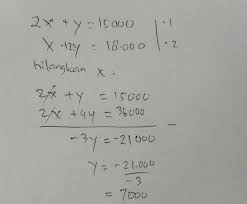 2x + y = 15000 | · 1
x + 2y = 18.000 | · 2
hilangkan x :
2x + y = 15000
2x + 4y = 36000
-
-3y = -21000
y = -21.000/-3
= 7000